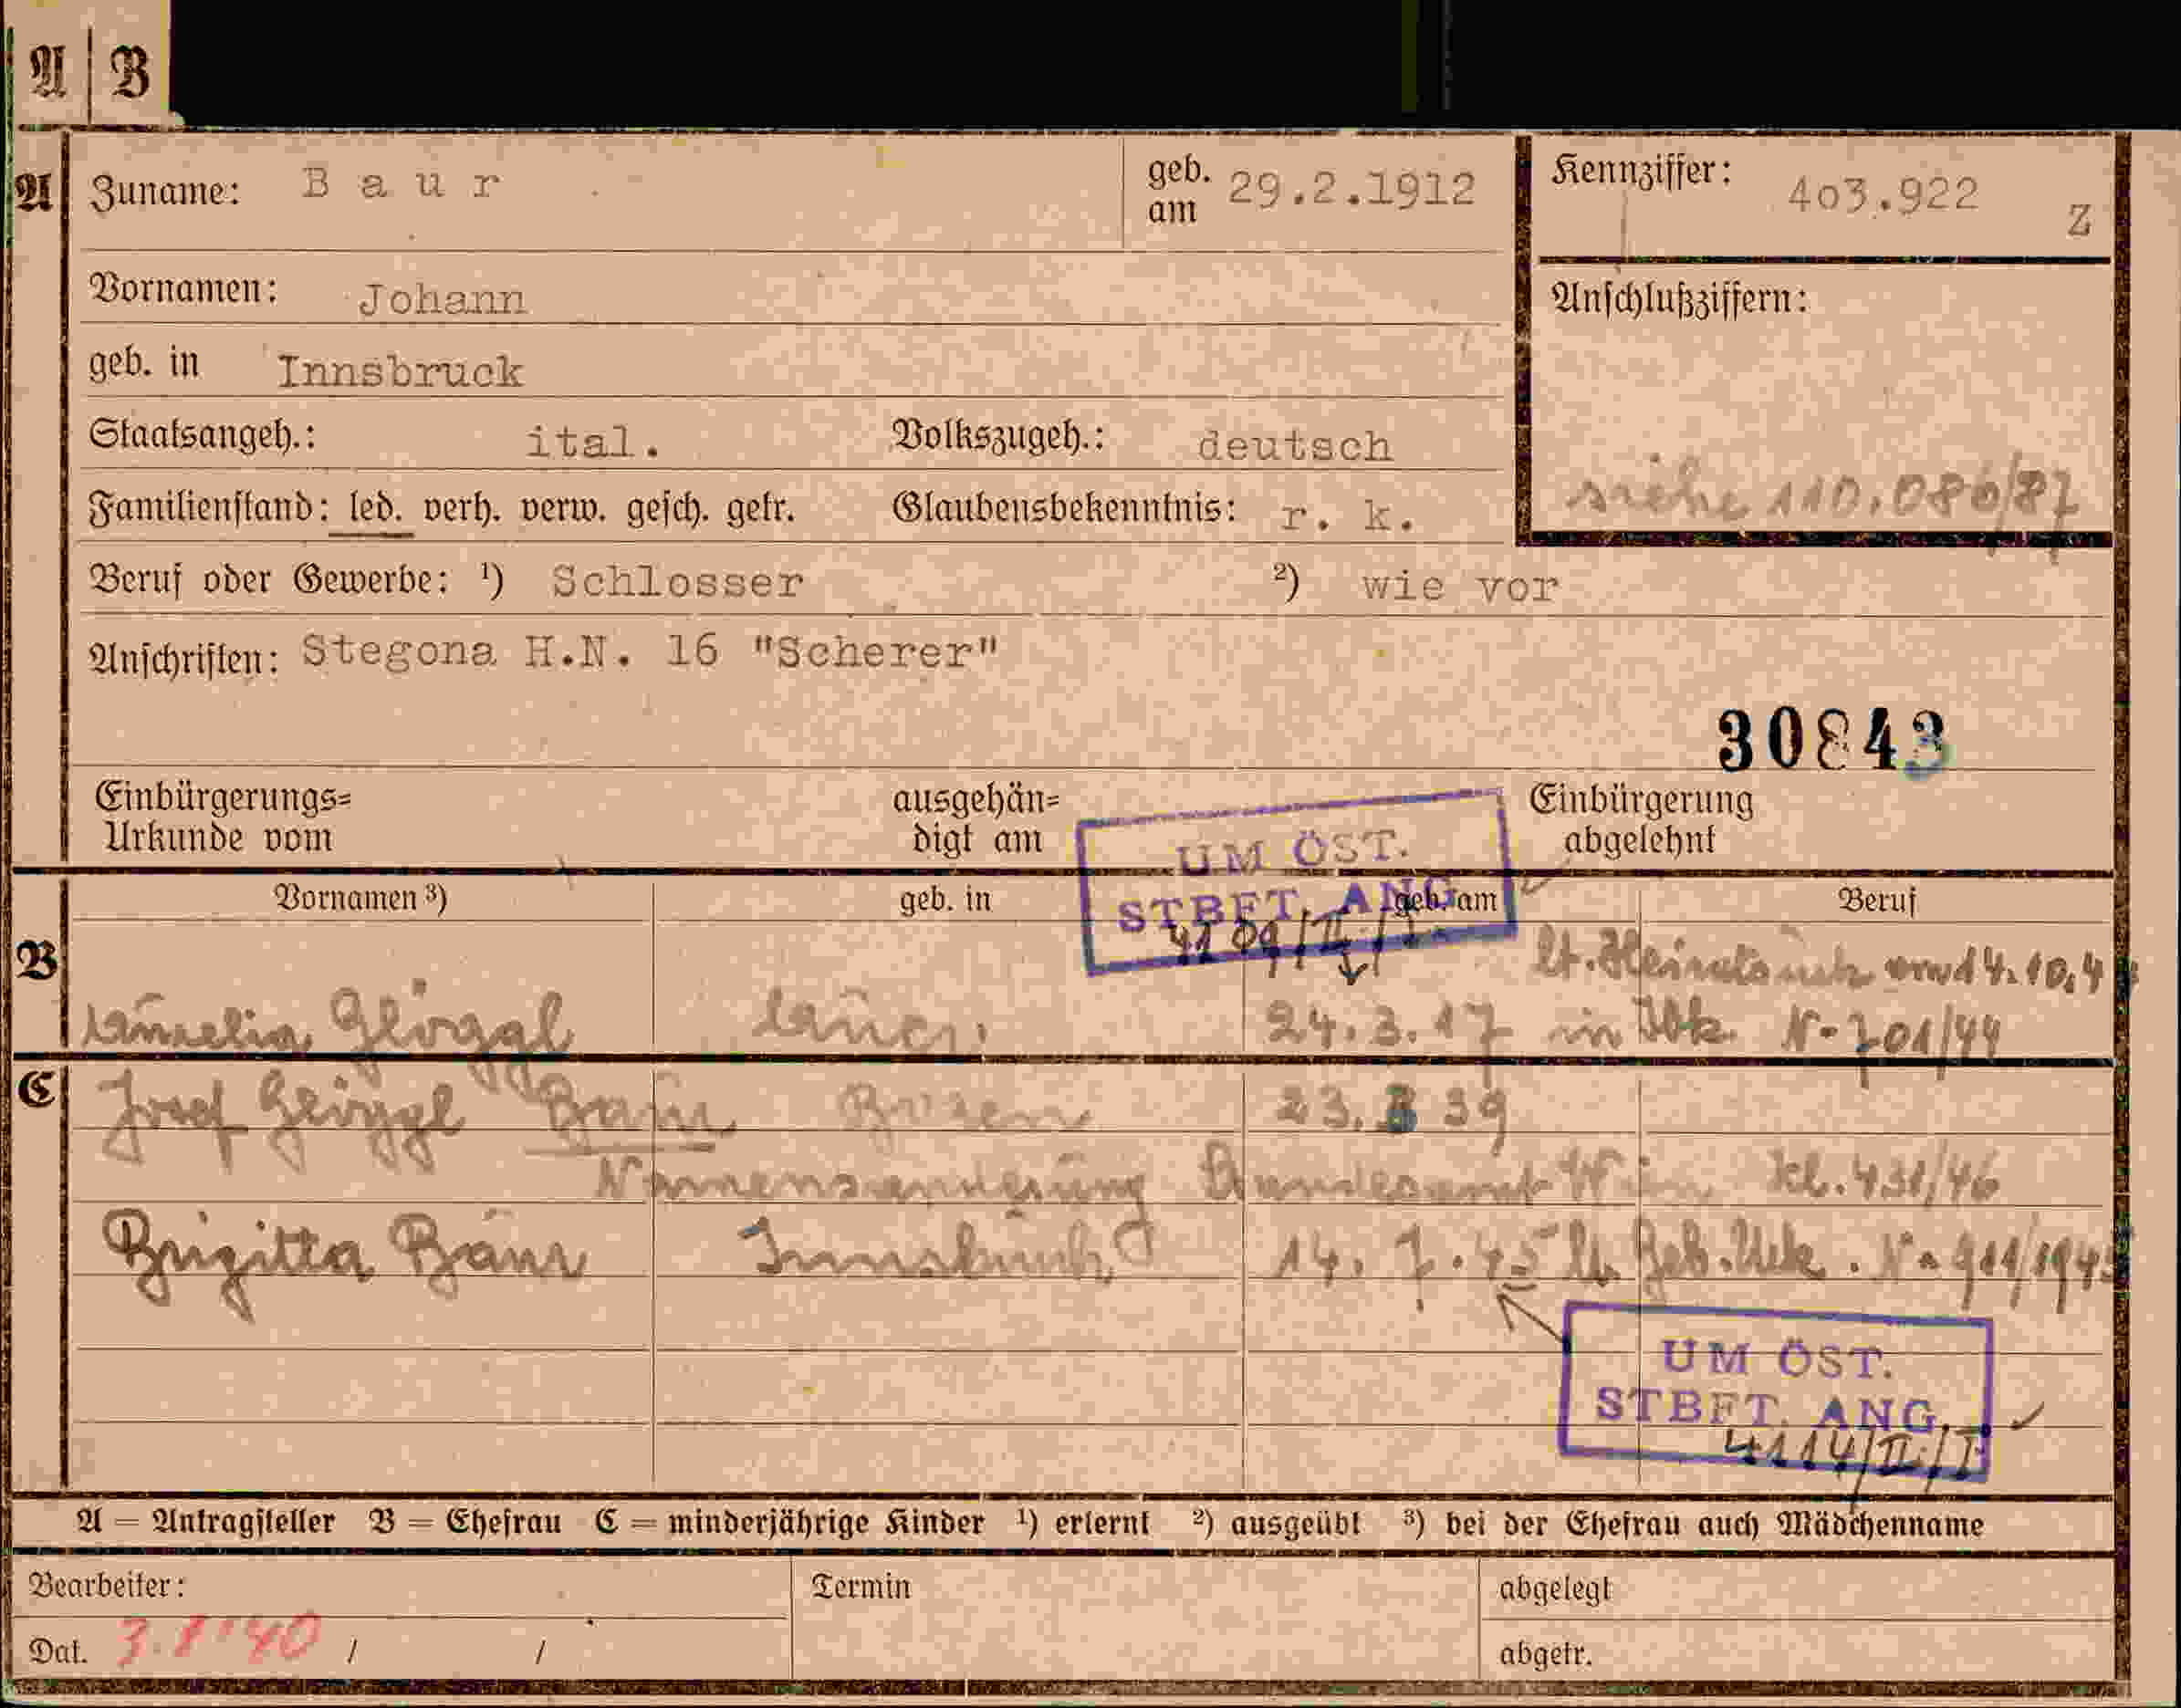 A | B
A Zuname: Baur geb. am 29.2.1912 Kennziffer: 403.922 Z
Vornamen: Johann Anschlußziffern:
geb. in Innsbruck
Staatsangeh.: ital. Volkszugeh.: deutsch
siehe 110.086/87
Familienstand: led. verh. verw. gesch. getr. Glaubensbekenntnis: r. k.
Beruf oder Gewerbe: ¹) Schlosser ²) wie vor
Anschriften: Stegona H.N. 16 "Scherer"
30843
Einbürgerungs= Urkunde vom ausgehän= digt am Einbürgerung abgelehnt
UM ÖST.
STBFT. ANG
Vornamen ³) geb. in geb. am Beruf
4109/II/I
B lt. Heiratsurk vom 14.10.4
Glöggl 24.3.17 in Ibk. N. 701/44
C Josef Glöggl Baur Bozen 23. 39
Namensänderung Kl. 431/46
Brigitta Baur Innsbruck 14. 7. 45 lt. Geb. Urk. N. 911/1945
UM ÖST.
STBFT. ANG.
4114/II/I
A = Antragsteller B = Ehefrau C = minderjährige Kinder ¹) erlernt ²) ausgeübt ³) bei der Ehefrau auch Mädchenname
Bearbeiter: Termin abgelegt
Dat. / / abgetr.